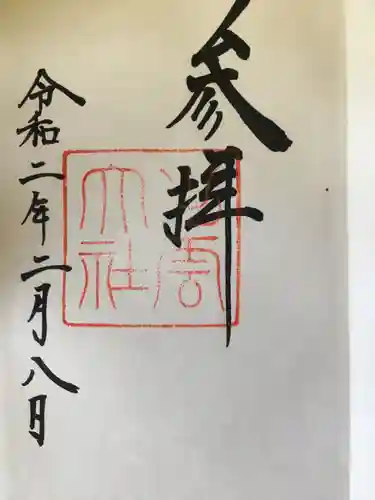 参拝
出雲大社
令和二年二月八日